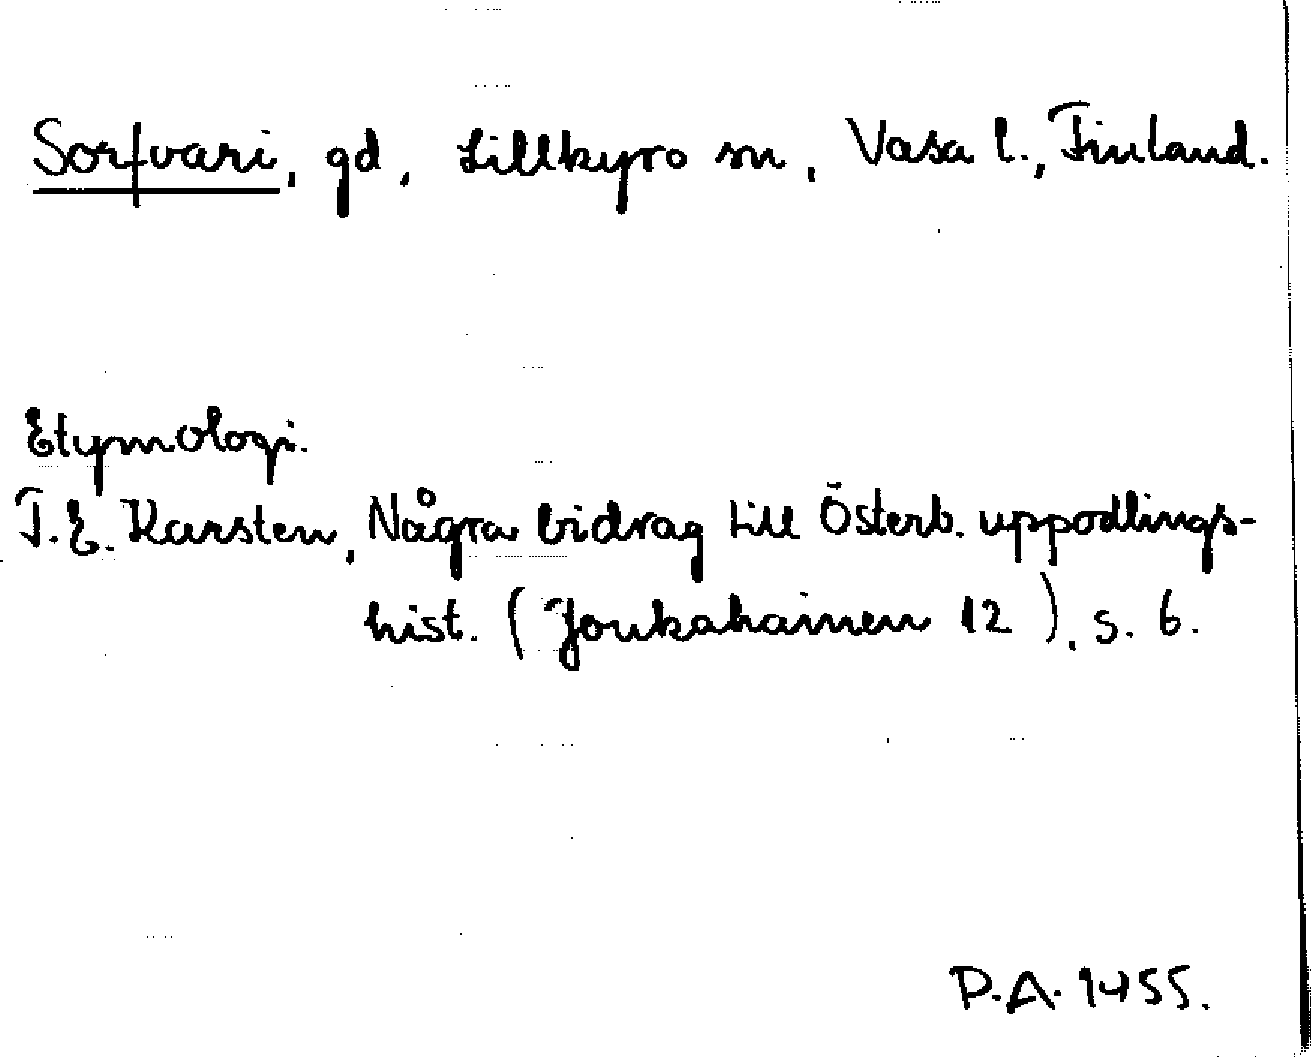 Sorfvari, gd, Lillkyro sn, Vasa l., Finland.
Etymologi.
T.E. Karsten, Några bidrag till Österb. uppodlings-
hist. (Joukahainen 12), s. 6.
P.A. 1455.